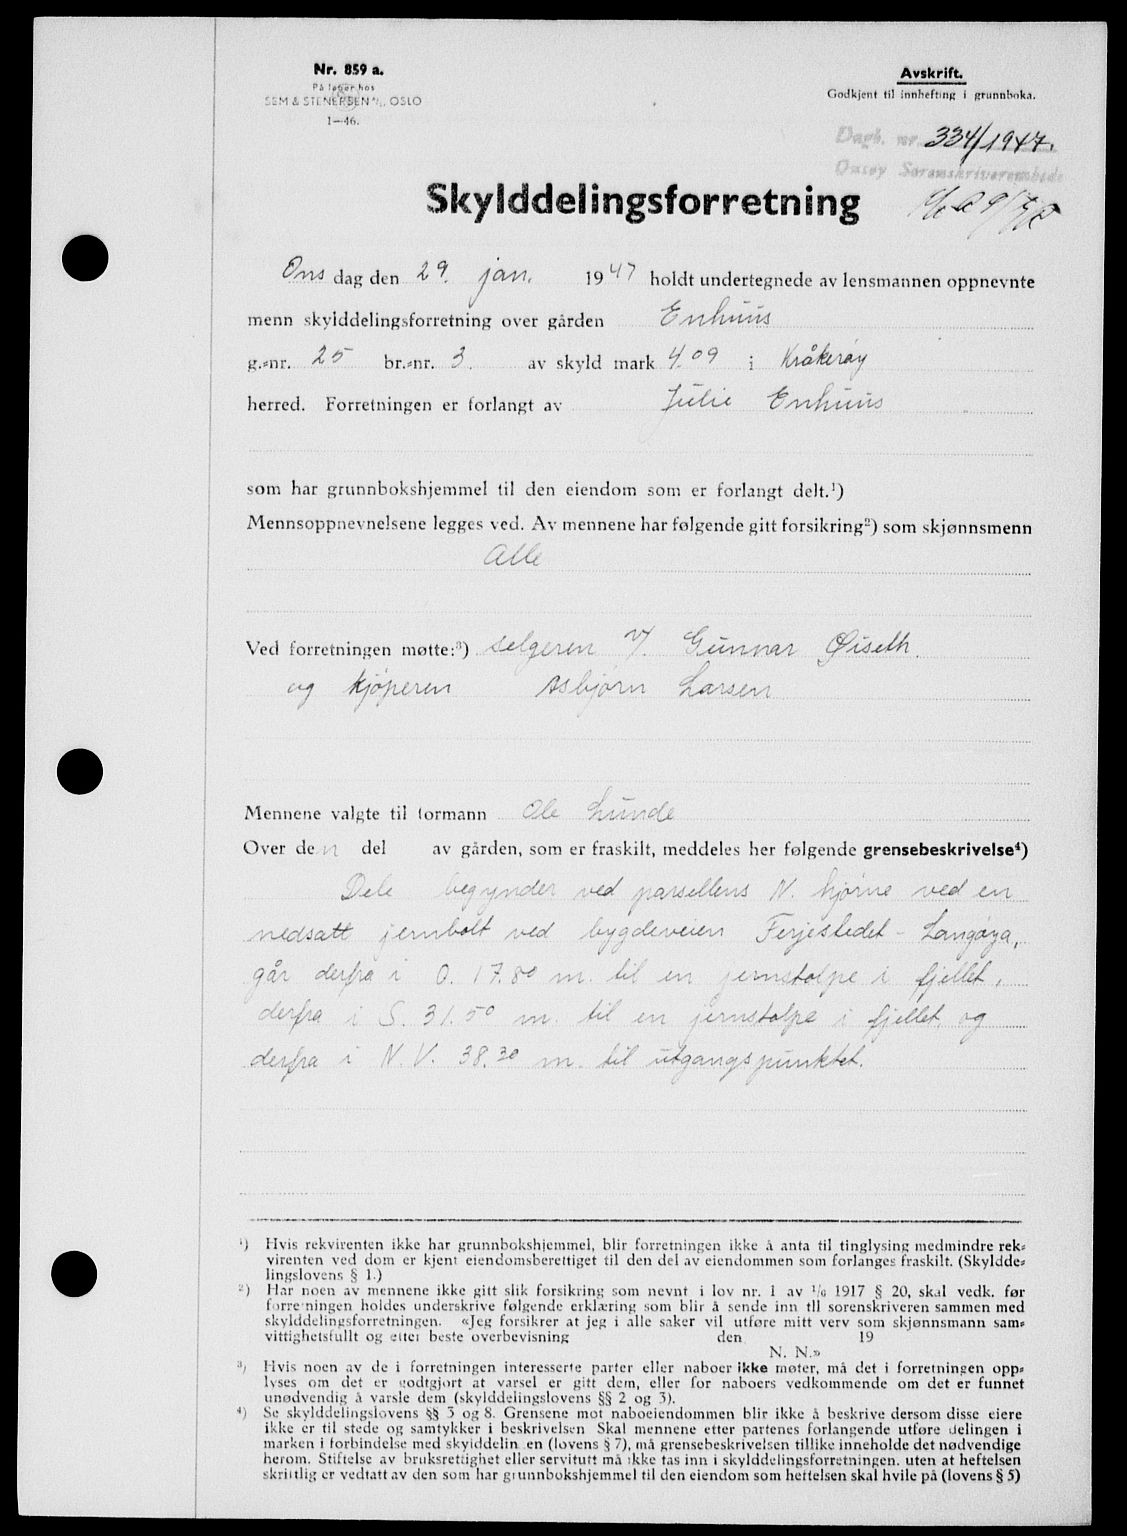 Nr. 859 a.
På lager hos
SEM & STENERSEN A/S, OSLO
1—46.
Avskrift.
Godkjent til innhefting i grunnboka.
Dagb. nr. 334/1947.
Onsøy Sorenskriverembede
Skylddelingsforretning
Ons dag den 29. jan. 1947 holdt undertegnede av lensmannen oppnevnte
menn skylddelingsforretning over gården Enhuus
g.-nr. 25 br.-nr. 3. av skyld mark 4.09 i Kråkerøy
herred. Forretningen er forlangt av Julie Enhuus
som har grunnbokshjemmel til den eiendom som er forlangt delt.¹)
Mennsoppnevnelsene legges ved. Av mennene har følgende gitt forsikring²) som skjønnsmenn
Alle
Ved forretningen møtte:³) selgeren v/. Gunnar Øiseth.
og kjøperen Asbjørn Larsen
Mennene valgte til formann Ole Lunde
Over den del av gården, som er fraskilt, meddeles her følgende grensebeskrivelse⁴)
Dele begynder ved parsellens N. hjørne ved en
nedsatt jernbolt ved bygdeveien Ferjestedet - Langøya,
går derfra i O. 17.80 m. til en jernstolpe i fjellet,
derfra i S. 31.50 m. til en jernstolpe i fjellet og
derfra i N.V. 38.30 m. til utgangspunktet.
¹) Hvis rekvirenten ikke har grunnbokshjemmel, blir forretningen ikke å anta til tinglysing medmindre rek-
virenten ved dom er kjent eiendomsberettiget til den del av eiendommen som forlanges fraskilt. (Skyldde-
lingslovens § 1.)
²) Har noen av mennene ikke gitt slik forsikring som nevnt i lov nr. 1 av 1/6 1917 § 20, skal vedk. før
forretningen holdes underskrive følgende erklæring som blir å sende inn til sorenskriveren sammen med
skylddelingsforretningen. «Jeg forsikrer at jeg i alle saker vil utføre mitt verv som skjønnsmann sam-
vittighetsfullt og etter beste overbevisning den 19
N. N.»
³) Hvis noen av de i forretningen interesserte parter eller naboer ikke møter, må det i forretningen opp-
lyses om det er godtgjort at varsel er gitt dem, eller for naboers vedkommende om det er funnet
unødvendig å varsle dem (skylddelingslovens §§ 2 og 3).
⁴) Se skylddelingslovens §§ 3 og 8. Grensene mot naboeiendommen blir ikke å beskrive dersom disse eiere
ikke er til stede og samtykker i beskrivelsen Skal mennene etter partenes forlangende utføre delingen i
marken i forbindelse med skylddelin en (lovens § 7), må grensebeskrivelsen tillike inneholde det nødvendige
herom. Stiftelse av bruksrettighet eller servitutt må ikke tas inn i skylddelingsforretningen. uten at heftelsen
skriftlig er vedtatt av den som har grunnbokshjemmel til den eiendom som heftelsen skal hvile på (lovens § 5)